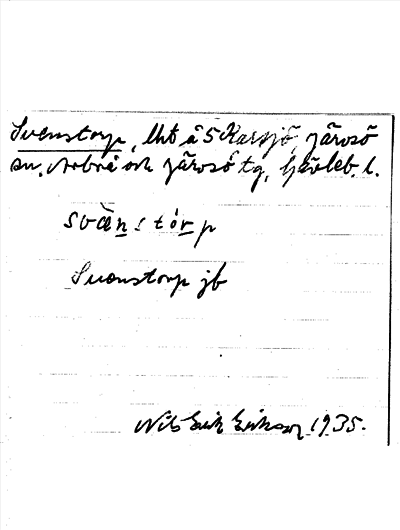 Svenstorp, lht å 5 Karsjö, Järvsö
sn. Arbrå och Järvsö tg, Gävleb. l.
svänstórp
Svenstorp jb
Nils Erik Erikson 1935.